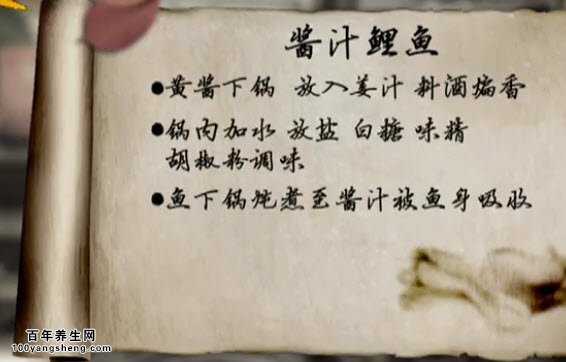 酱汁鲤鱼
●黄酱下锅 放入姜汁 料酒煸香
●锅内加水 放盐 白糖 味精
胡椒粉调味
●鱼下锅炖煮至酱汁被鱼身吸收
百年养生网
100yangsheng.com